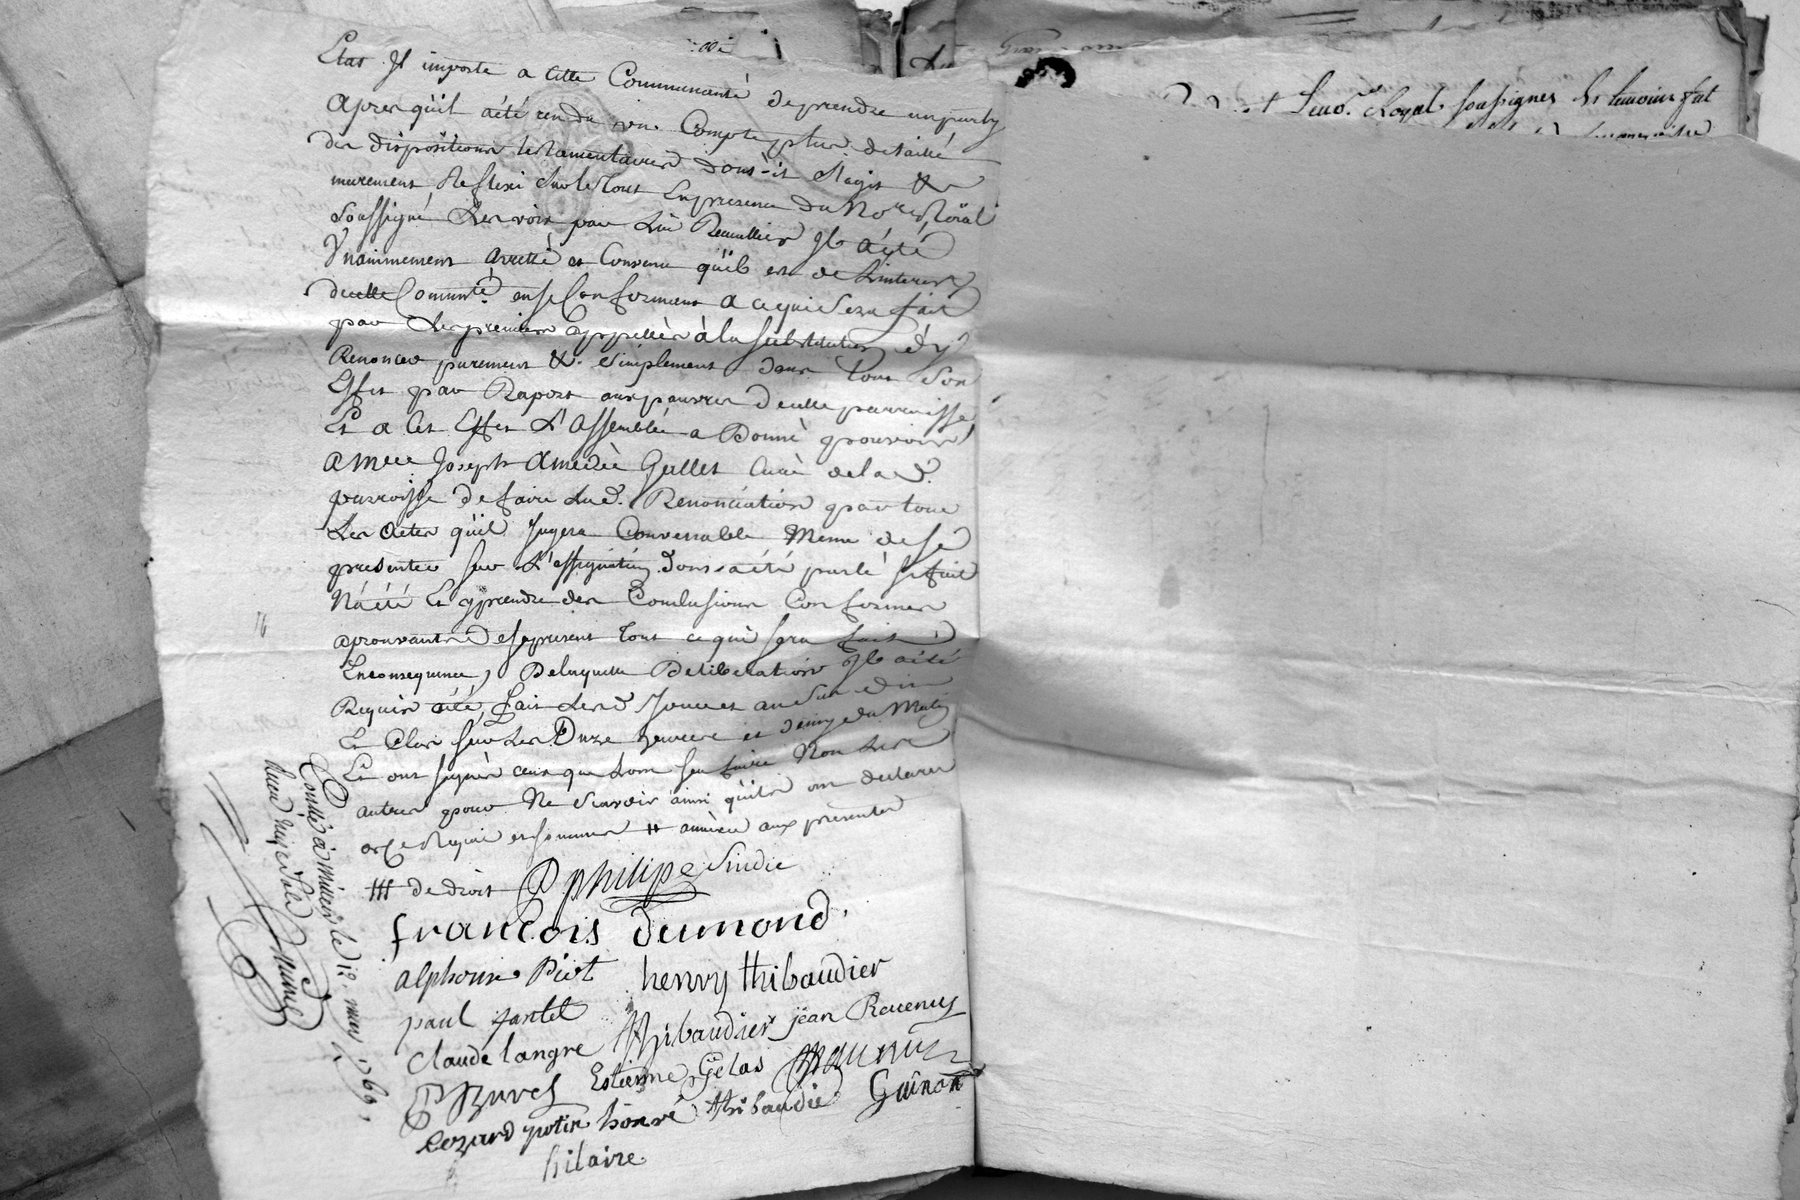 Etat Jl importe a cette Communauté deprendre unparty
Apres quil aété rendu un Compte plus detaillé
des dispositions testamentaires dont-il sagit &
murement Reflexi sur le tout En presence du No.re Roïal
soussigné Les voix par Lui Recueillies Jl aété
Unanimement arretté et Convenu quil est de Linteret
dicelle Commté. en se Conformant a ce qui sera fait
par Les premiers appellés à la substitution d'y
Renoncer purement & simplement dans tout son
Effet par Raport aux pauvres dicelle parroisse
Et a Cet Effet L'assemblée a Donné pouvoir
a Mre Joseph Amedée Gallet Curé de la d.
parroisse de faire lad. Renonciation par tous
Les actes quil Jugera Convenable Meme de se
presenter sur L'assignation dont-aété parlé si fait
N'aété Et prendre des Conclusions Conformes
aprouvants des apresent tout ce qui sera fait
Enconsequence, De laquelle Deliberation Jl aété
Requis acte, fait Lesd Jour et an Susdit
Et Clos sur Les Onze heures et demye du Matin
Et ont signés ceux qui Lont sceu faire Non Les
autres pour Ne scavoir ainsi quils ont declarés
de ce Requis et sommés # annexé aux presentes
### de droit P philipe Sindic
francois dumond.
alphonse Piot henry thibaudier
paul jantet Thibaudier jëan Rouenus
Claude langre
P Buret Estienne Gelas
Cozard potin honré thibaudie Guinon
hilaire
Controllé à Millery le 12. may 1769.